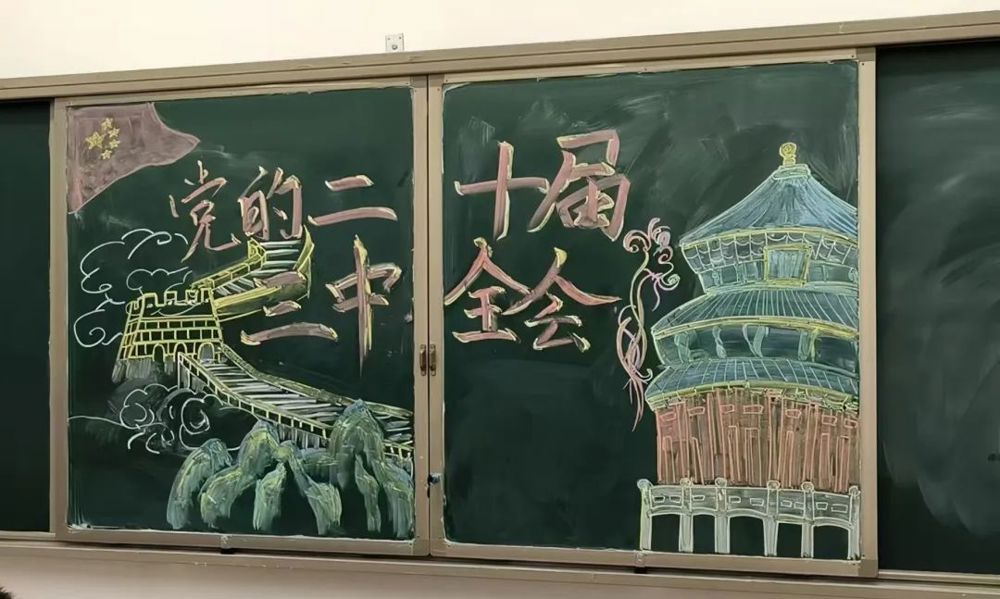 党的二十届
三中全会